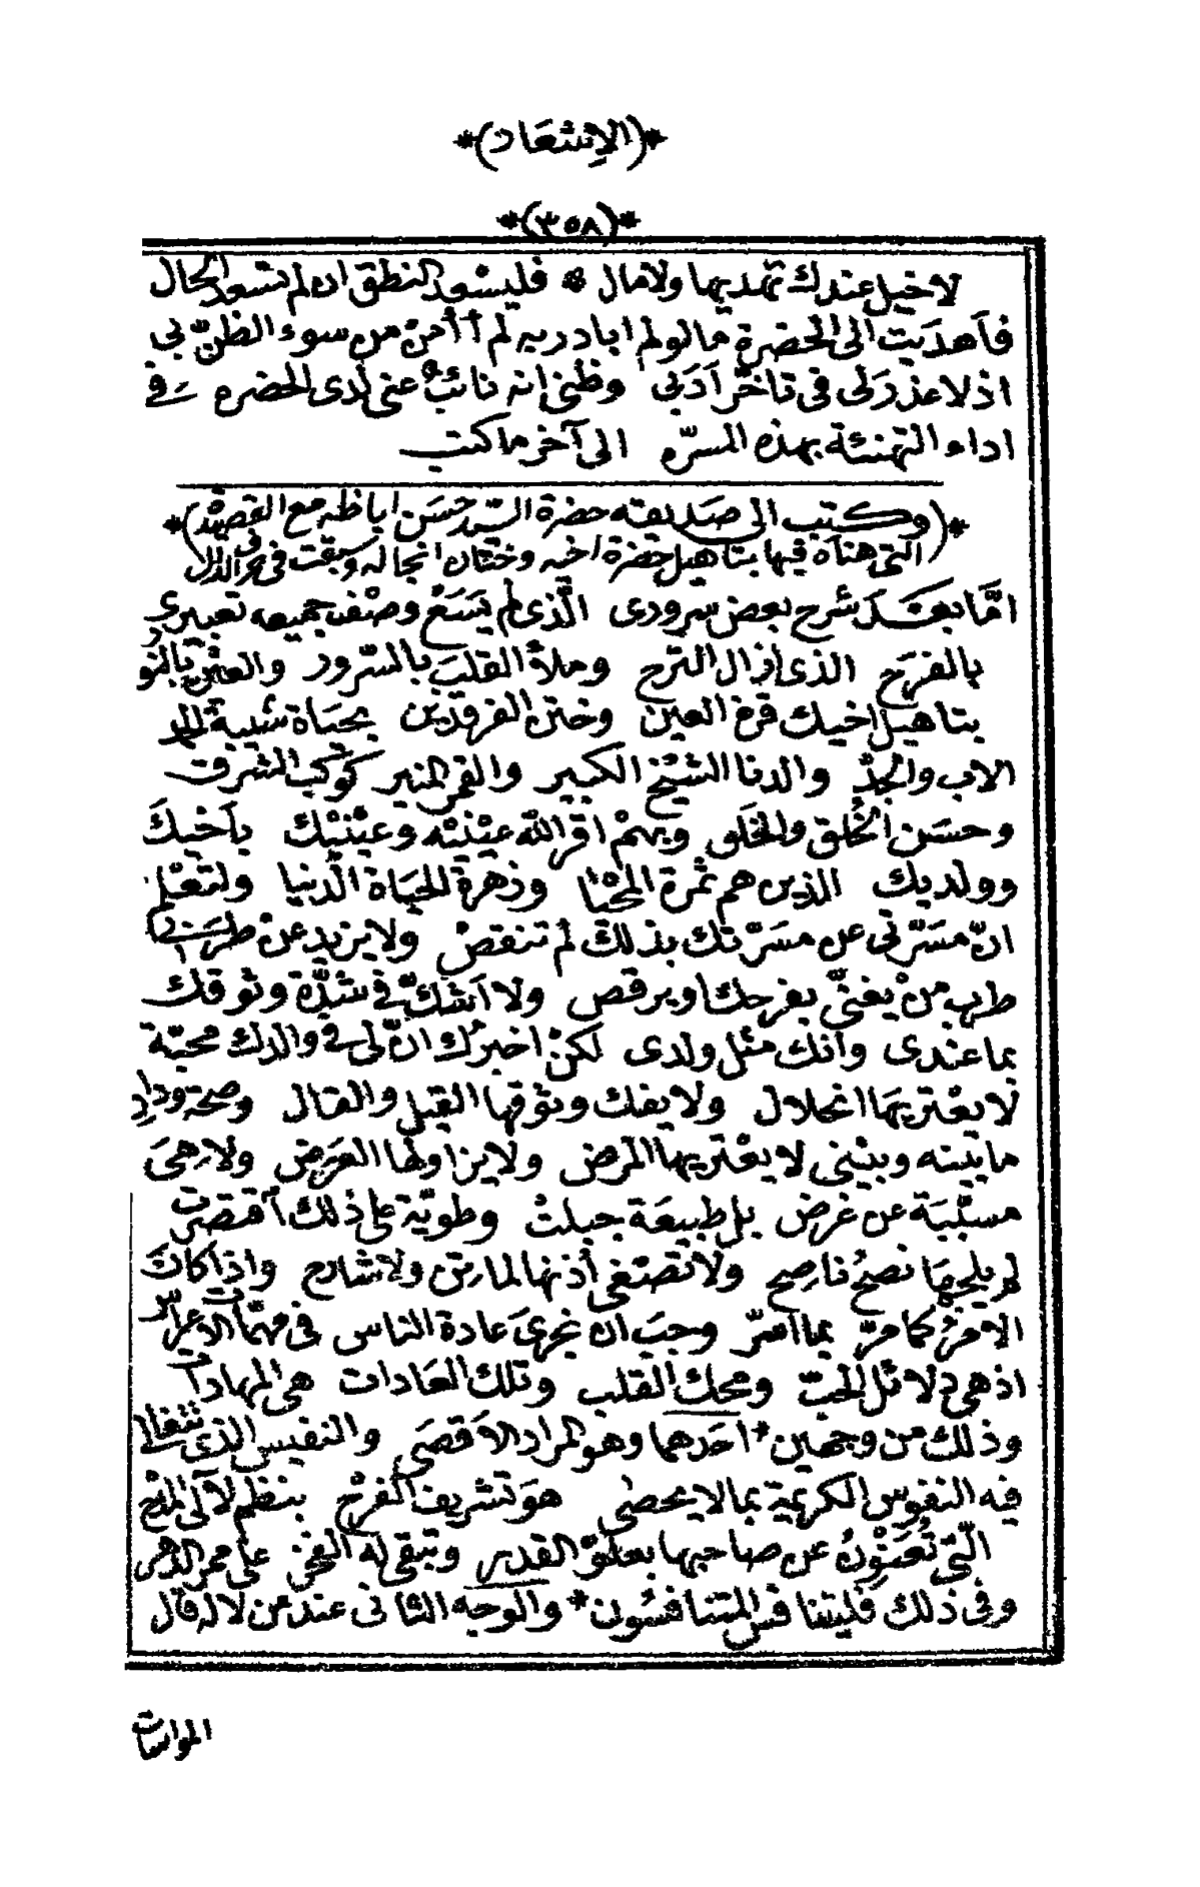 *(الاِنشَاد)*
*(٣٥٨)*
لا خيل عندك تهديها ولا مال * فليسعد النطق ان لم تسعد الحال
فأهدَيت الى الحضرة ما لو لم ابادر به لم أأمنْ من سوء الظنّ بي
اذ لا عذر لى فى تاخّر اَدَبى وظنى انه نائب عنى لدى الحضره فى
اداء التهنئة بهذه المسرّه الى آخر ما كتب
*(وكتب الى صديقه حضرة السّيد حسَن اباظه مع القصيدة
التى هناه فيها بتاهيل حضرة اخيه وختان انجاله وسبقت فى حرف الدال)*
امَّا بعَد شرح بعض سرورى الَّذى لم يَسَعْ وصْف جميعه تعبيرى
بالفرَح الذى ازال الترح وملأ القلبَ بالسّرور والعيْن بالنور
بتاهيل اخيك قرة العين وختن الفرقدَين بحيَاة شيبة الحمد
الاب والجدّ والدنا الشيْخ الكبير والقمر المنير كوكب الشرف
وحسَن الخُلق والخَلق وبهمْ اقرّ اللّه عيْنيْه وعيْنيْك بأخيكَ
وولديك الذين هم ثمرة المحْيَا وزهرة الحيَاة الدّنيا ولتعْلم
انّ مسَرّتى عن مسَرّتك بذلك لم تنقصْ ولا يزيد عنْ طربى
طرب منْ يغنّى بفرحك ويرقص ولا اَشكّ فى شدّة وثوقك
بما عندى وأنك مثل ولدى لكنْ اخبرُك انّ لى فى والدك محبّة
لا يعْتريهَا انحلال ولا يفك وثوقها القيل والقال وصحة ودادٍ
ما بيْنه وبيْنى لا يعْتريها المرض ولا يزاولها العَرَض ولا هىَ
مسبّبَة عن غرض بل طبيعَة جبلتْ وطويّة على ذلك اقتصرت
لم يلجهَا نصحُ ناصِح ولا تصْغى أذنها لمازح ولا شارح واذا كانَ
الامرُ كما مرّ بما اسرّ وجبَ ان نجرىَ عادة الناس فى مهمّات الاعراس
اذ هى دلائل الحبّ ومحك القلب وتلك العَادات هى المهادات
وذلك من وجهين * احَدهما وهو المراد الاَقصَى والنفيس الذى تتغالى
فيه النفوس الكريمة بما لا يحصَى هوَ تشريف الفرَح بنظم لآلى المدْح
الّتى تُعَنْوِنُ عن صاحبها بعلوّ القدر وتبقى له الفخر على ممرّ الدّهر
وفى ذلك فليتنا فس المتنافسُون * والوجه الثانى عند من لا له قال
المواسات